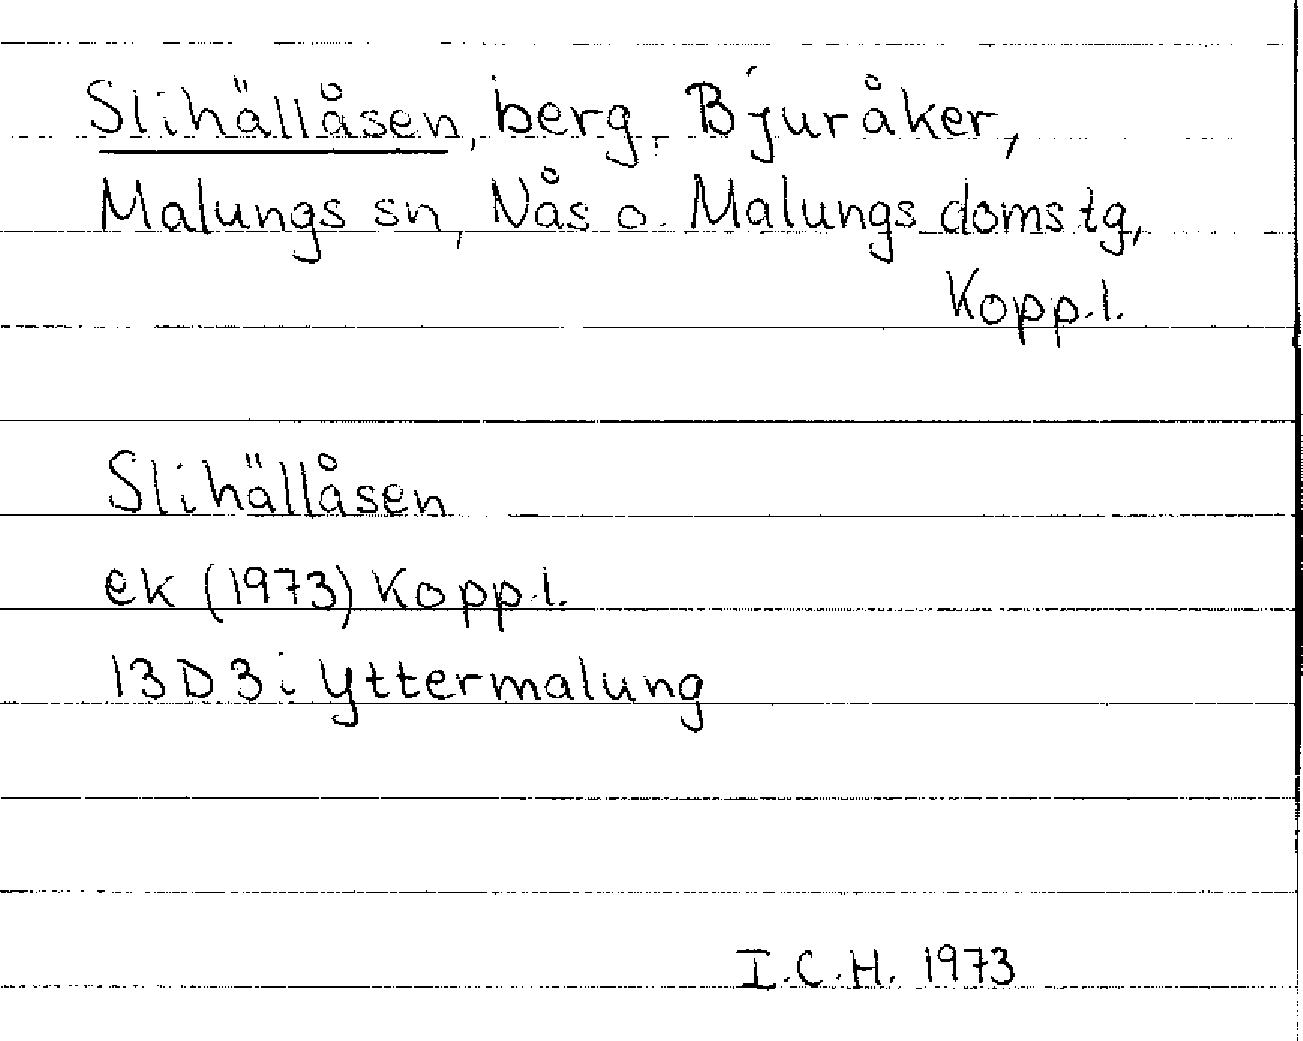 Slihällåsen, berg, Bjuråker,
Malungs sn, Nås o. Malungs domstg,
Kopp.l.
Slihällåsen
ek (1973) Kopp.l.
13D3i Yttermalung
I.C.H. 1973